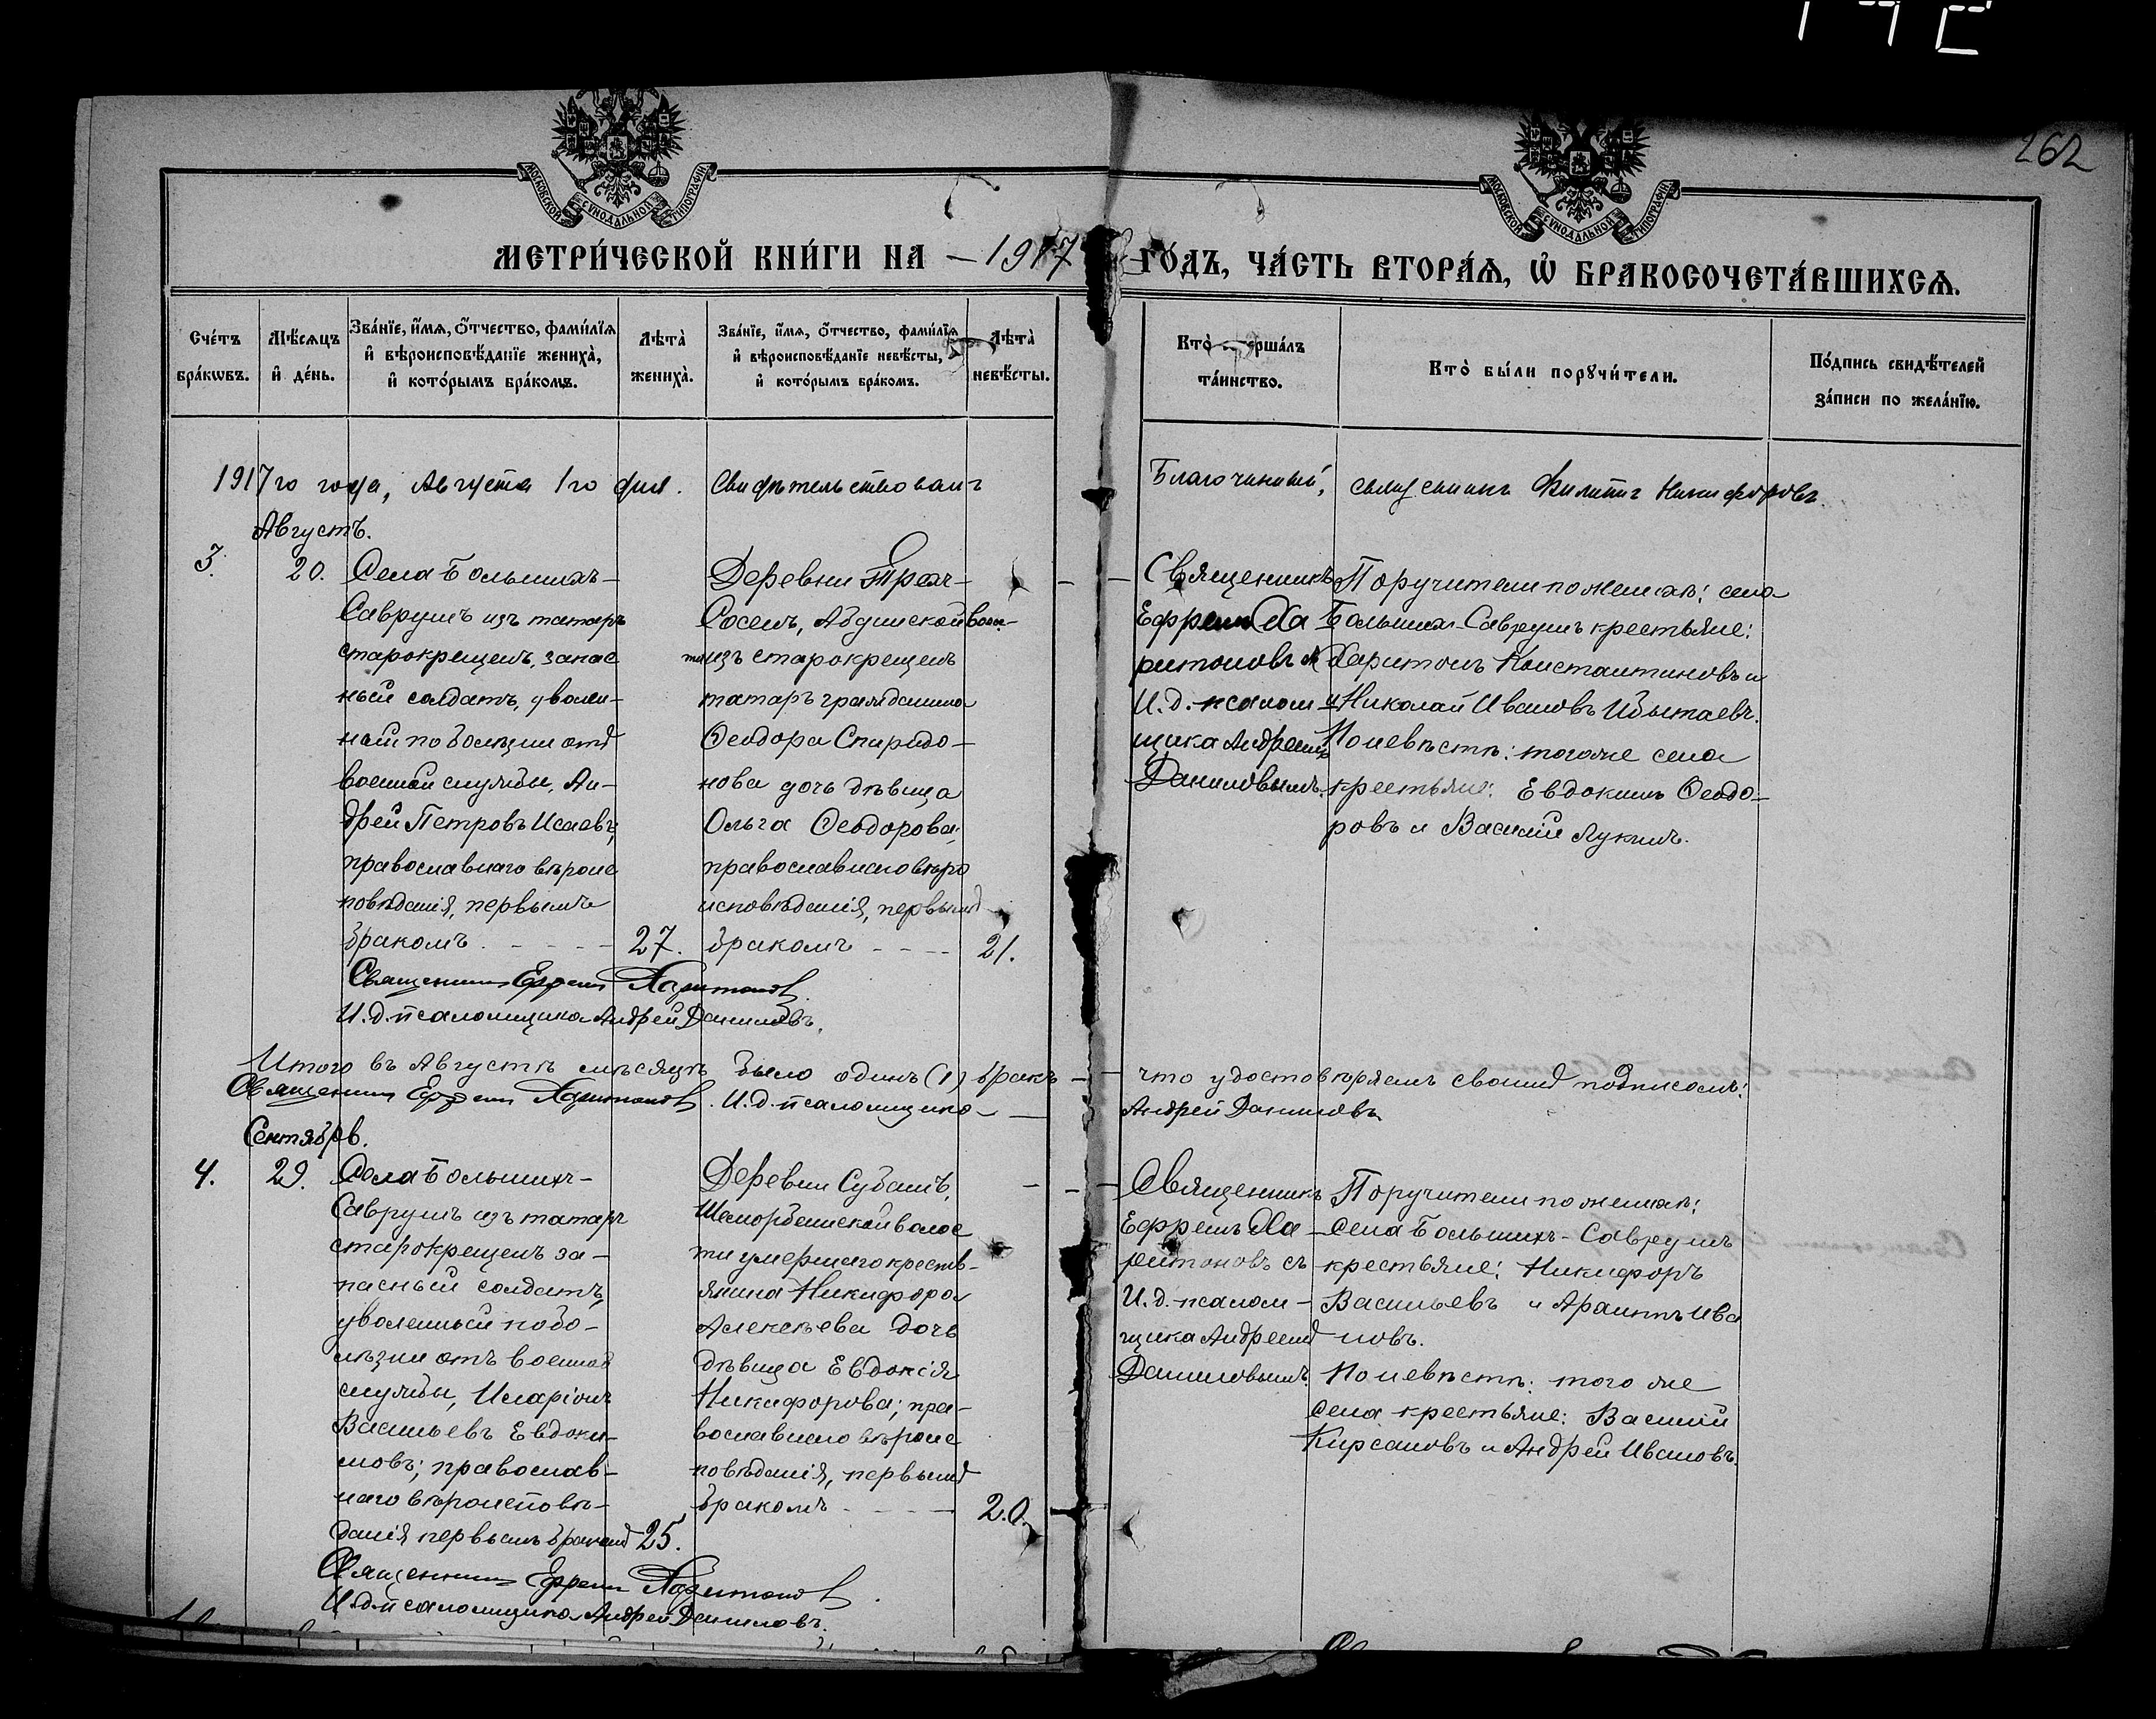 262
МОСКОВСКОЙ СѴНОДАЛЬНОЙ ТИПОГРАФІИ
МОСКОВСКОЙ СѴНОДАЛЬНОЙ ТИПОГРАФІИ
МЕТРИ́ЧЕСКОЙ КНИ́ГИ НА – 1917 ГО́ДЪ, ЧА́СТЬ ВТОРА́Ѧ, Ѡ҆ БРАКОСОЧЕТА́ВШИХСѦ.
Сче́тъ бра́кѡвъ.
Мѣ́сѧцъ и҆ де́нь.
Зва́нїе, и҆́мѧ, ѻ҆́тчество, фами́лїѧ и҆ вѣроисповѣ́данїе жениха̀, и҆ кото́рымъ бра́комъ.
Лѣта̀ жениха̀.
Зва́нїе, и҆́мѧ, ѻ҆́тчество, фами́лїѧ и҆ вѣроисповѣ́данїе невѣ́сты, и҆ кото́рымъ бра́комъ.
Лѣта̀ невѣ́сты.
Кто̀ ершалъ та́инство.
Кто̀ бы́ли порꙋчи́тели.
По́дпись свидѣ́телей за́писи по жела́нїю.
1917го года, Августа 1го дня. Свидѣтельствовалъ Благочинный, священникъ Филиппъ Никифоровъ.
Августъ.
3.
20.
Села Большихъ-
Саврушъ изъ татаръ
старокрещенъ, запас
ный солдатъ, уволен-
ный по болѣзни отъ
военной службы, Ан-
дрей Петровъ Исаевъ;
православнаго вѣроис
повѣданія, первымъ
бракомъ - - - -
27.
Деревни Трехъ-
Сосенъ, Абдинской волос-
ти изъ старокрещенъ
татаръ гражданина
Ѳеодора Спиридо-
нова дочь дѣвица
Ольга Ѳеодорова;
православнаго вѣро
исповѣданія, первымъ
бракомъ - - -
21.
Священникъ
Ефремъ Ха
ритоновъ съ
И. д. псалом
щика Андреемъ
Даниловымъ.
Поручители по женихѣ: села
Большихъ-Саврушъ крестьяне:
Харитонъ Константиновъ и
Николай Ивановъ Ибытаевъ.
По невѣстѣ: того же села
крестьяне: Евдокимъ Ѳеодо-
ровъ и Василій Лукинъ.
Священникъ Ефремъ Харитоновъ.
И. д. псаломщика Андрей Даниловъ.
Итого въ Августѣ мѣсяцѣ было одинъ (1) бракъ – что удостовѣряемъ своимъ подписомъ:
Священникъ Ефремъ Харитоновъ. И. д. псаломщика – Андрей Даниловъ.
Сентябрь.
4.
29.
Села Большихъ-
Саврушъ изъ татаръ
старокрещенъ за-
пасный солдатъ,
уволенный по бо-
лѣзни отъ военной
службы, Иларіонъ
Васильевъ Евдоки-
мовъ; православ-
наго вѣроисповѣ-
данія первымъ бракомъ
25.
Деревни Субашъ,
Шеморбашской волос
ти умершаго кресть-
янина Никифора
Алексѣева дочь
дѣвица Евдокія
Никифорова; пра-
вославнаго вѣроис
повѣданія, первымъ
бракомъ - - -
20.
Священникъ
Ефремъ Ха-
ритоновъ съ
И. д. псалом-
щика Андреемъ
Даниловымъ.
Поручители по женихѣ:
села Большихъ-Саврушъ
крестьяне: Никифоръ
Васильевъ и Ива
новъ.
По невѣстѣ: того же
села крестьяне: Василій
Кирсановъ и Андрей Ивановъ.
Священникъ Ефремъ Харитоновъ.
И. д. псаломщика Андрей Даниловъ.